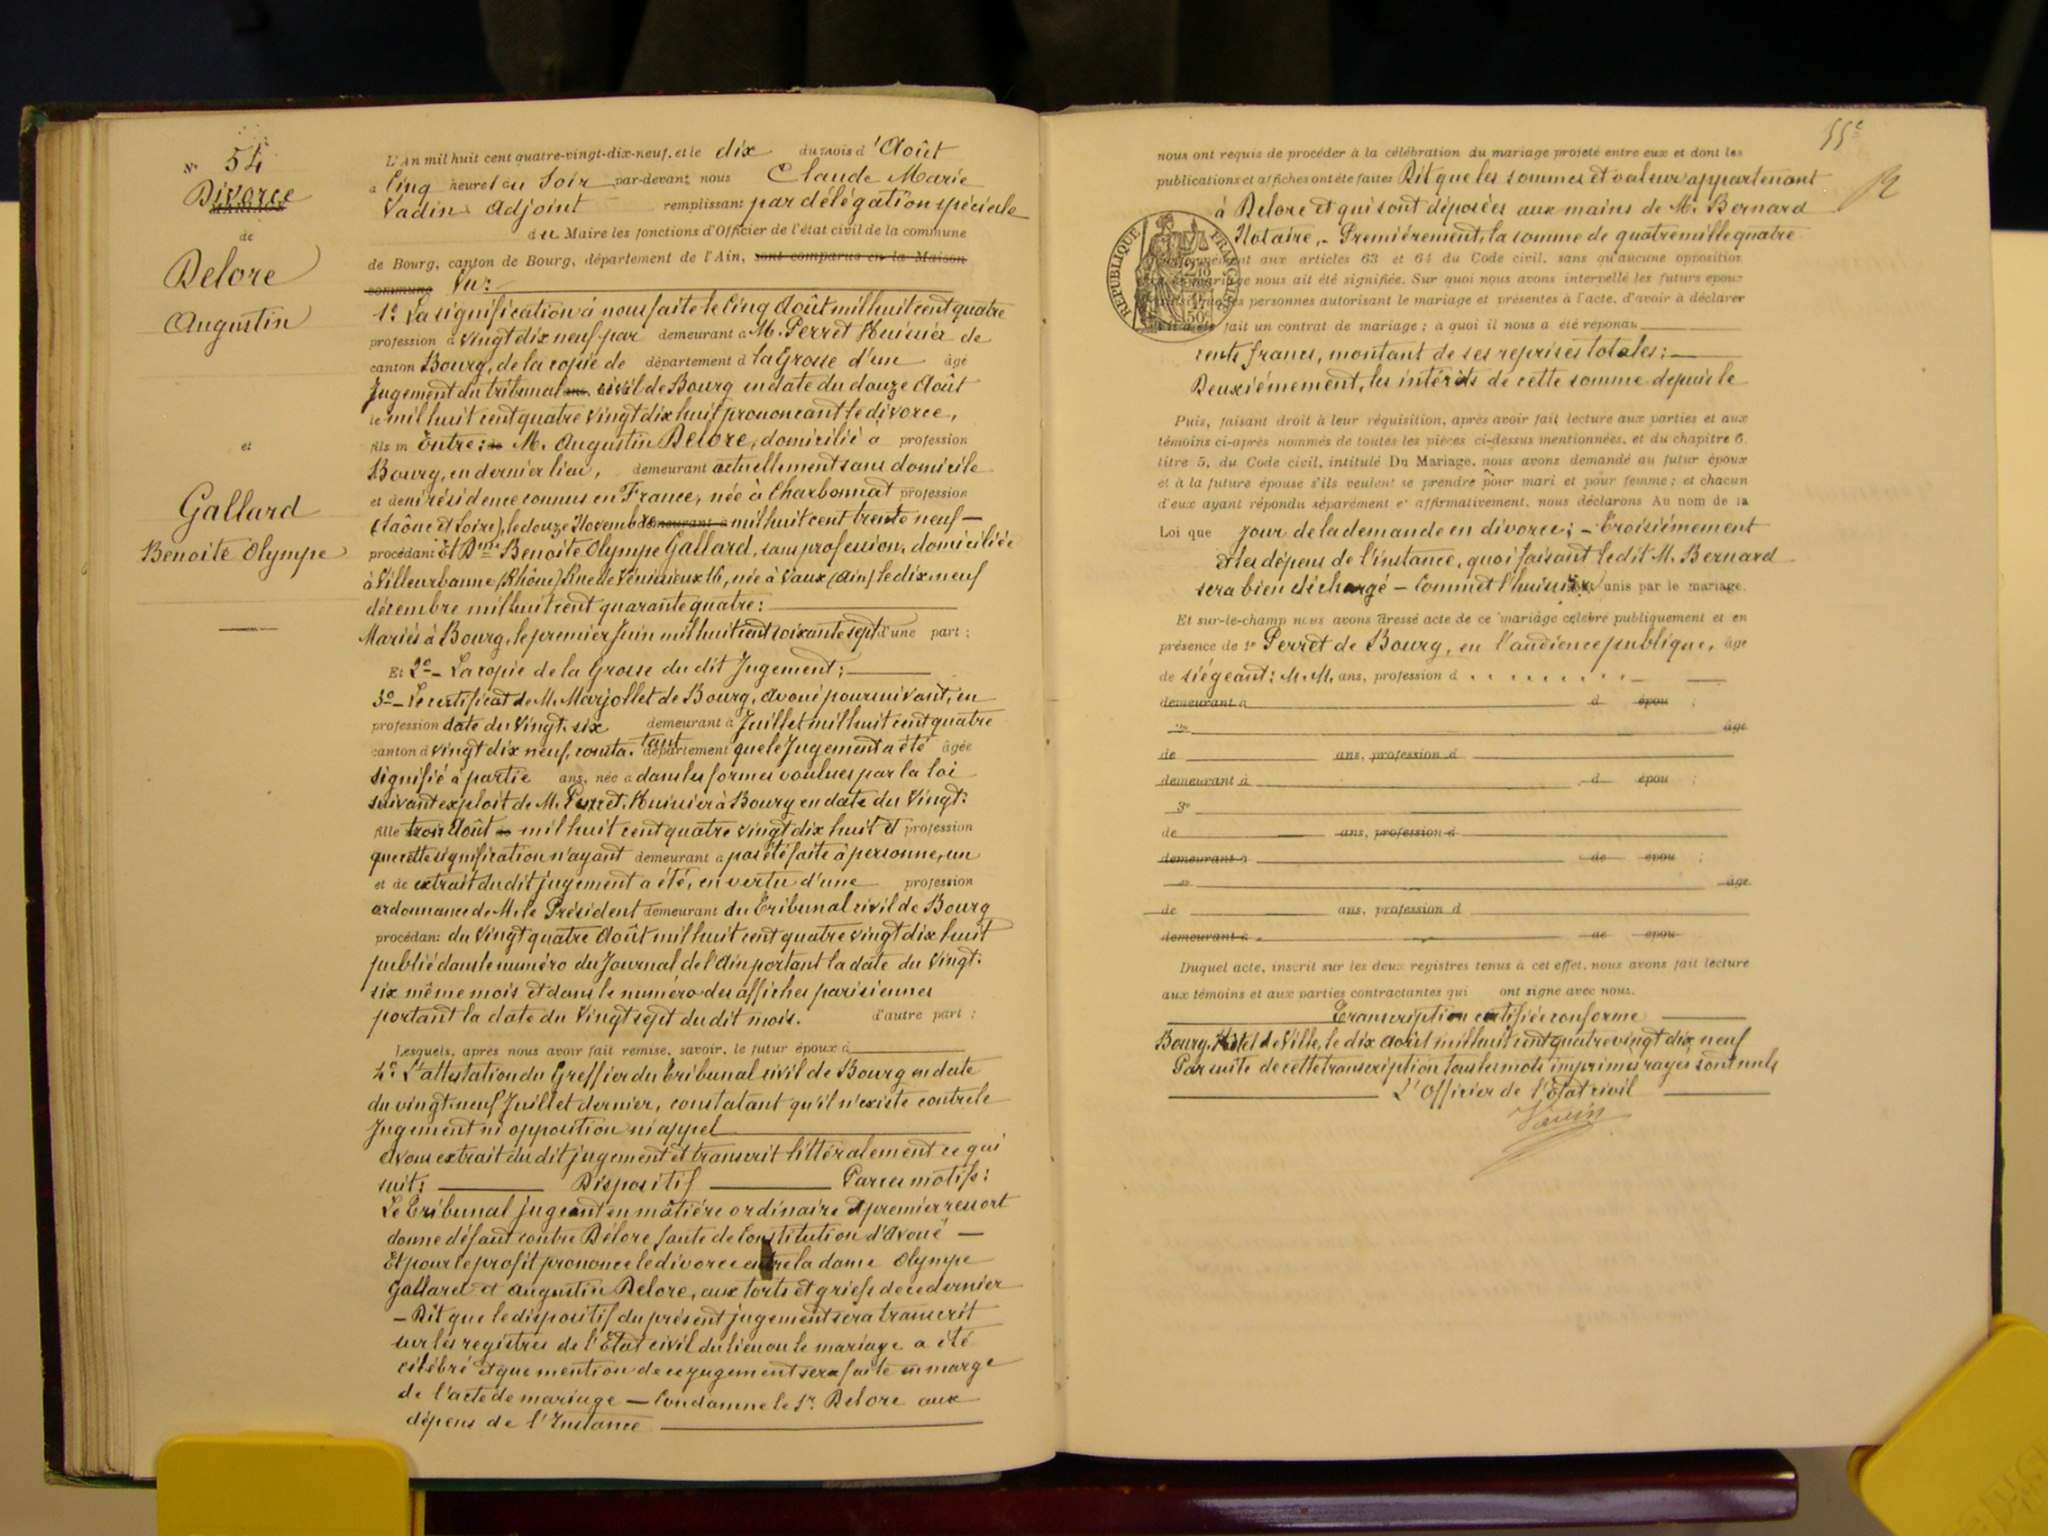 N° 54
Divorce
de
Delore
Augustin
et
Gallard
Benoite Olympe
L'An mil huit cent quatre-vingt-dix-neuf, et le dix du mois d'Août
à Cinq heures du Soir par-devant nous Claude Marie
Vadin Adjoint remplissant par délégation spéciale
du Maire les fonctions d'Officier de l'état civil de la commune
de Bourg, canton de Bourg, département de l'Ain, sont comparus en la Maison
commune Vu:
1° La signification à nous faite le Cinq Août mil huit cent quatre
profession d vingt dix neuf par demeurant à M. Perret Huissier de
canton Bourg, de la copie de département d la Grosse d'un âgé
Jugement du tribunal ans, civil de Bourg en date du douze Août
le mil huit cent quatre vingt dix huit prononcant le divorce,
fils m Entre: de M. Augustin Delore, domicilié à profession
Bourg, en dernier lieu, demeurant actuellement sans domicile
et de ni résidence connus en France, née à Charbonnat profession
(Saône et Loire), le douze Novembre demeurant à mil huit cent trente neuf —
procédant Et Dme Benoite Olympe Gallard, sans profession, domiciliée
à Villeurbanne (Rhône) Rue de Vénissieux 16, née à Vaux (Ain) le dix neuf
décembre mil huit cent quarante quatre:
Mariés à Bourg, le premier Juin mil huit cent soixante sept d'une part;
Et 2° — La copie de la Grosse du dit Jugement;
3° — Le certificat de M. Marjollet de Bourg, avoué poursuivant, en
profession date du Vingt-six demeurant à Juillet mil huit cent quatre
canton d vingt dix neuf, consta-tant département que le Jugement a été âgée
signifié à partie ans, née à dans les formes voulues par la loi
suivant exploit de M. Perret, Huissier à Bourg en date du Vingt-
fille trois Août de mil huit cent quatre vingt dix huit et profession
que cette signification n'ayant demeurant à pas été faite à personne, un
et de extrait du dit jugement a été, en vertu d'une profession
ordonnance de M. le Président demeurant du Tribunal civil de Bourg
procédant du Vingt quatre Août mil huit cent quatre vingt dix huit
publié dans le numéro du Journal de l'Ain portant la date du Vingt-
six même mois et dans le numéro des affiches parisiennes
portant la date du Vingt sept du dit mois. d'autre part;
Lesquels, après nous avoir fait remise, savoir, le futur époux à
4° L'attestation du Greffier du Tribunal civil de Bourg en date
du vingt-neuf Juillet dernier, constatant qu'il n'existe contre le
Jugement ni opposition ni appel
avons extrait du dit jugement et transcrit littéralement ce qui
suit: Dispositif Par ces motifs:
Le Tribunal jugeant en matière ordinaire et premier ressort
donne défaut contre Délore faute de Constitution d'Avoué —
Et pour le profit prononce le divorce entre la dame Olympe
Gallard et Augustin Delore, aux torts et griefs de ce dernier
— Dit que le dispositif du présent jugement sera transcrit
sur les registres de l'Etat civil du lieu ou le mariage a été
célébré et que mention de ce jugement sera faite en marge
de l'acte de mariage — Condamne le Sr. Delore aux
dépens de l'Instance
55e
nous ont requis de procéder à la célébration du mariage projeté entre eux et dont les
publications et affiches ont été faites Dit que les sommes et valeurs appartenant
à Delore et qui sont déposées aux mains de M. Bernard
Notaire, — Premièrement, la somme de quatre mille quatre
aux articles 63 et 64 du Code civil, sans qu'aucune opposition
mariage nous ait été signifiée. Sur quoi nous avons interpellé les futurs époux
les personnes autorisant le mariage et présentes à l'acte, d'avoir à déclarer
fait un contrat de mariage; à quoi il nous a été répondu
RÉPUBLIQUE FRANÇAISE
50c
cents francs, montant de ses reprises totales:
Deuxièmement, les intérêts de cette somme depuis le
Puis, faisant droit à leur réquisition, après avoir fait lecture aux parties et aux
témoins ci-après nommés de toutes les pièces ci-dessus mentionnées, et du chapitre 6,
titre 5, du Code civil, intitulé Du Mariage, nous avons demandé au futur époux
et à la future épouse s'ils veulent se prendre pour mari et pour femme; et chacun
d'eux ayant répondu séparément et affirmativement, nous déclarons Au nom de la
Loi que jour de la demande en divorce; — Troisièmement
et les dépens de l'instance, quoi faisant le dit M. Bernard
sera bien déchargé — Commet l'huissier unis par le mariage.
Et sur-le-champ nous avons dressé acte de ce mariage célébré publiquement et en
présence de 1° Perret de Bourg, en l'audience publique, âgé
de siégeant: M.M. ans, profession d
demeurant à d épou ;
2° âgé
de ans, profession d
demeurant à d épou ;
3°
de ans, profession d
demeurant à de epou ;
4° âgé
de ans, profession d
demeurant à de epou
Duquel acte, inscrit sur les deux registres tenus à cet effet, nous avons fait lecture
aux témoins et aux parties contractantes qui ont signé avec nous.
Transcription certifiée conforme
Bourg, Hôtel de Ville, le dix Août mil huit cent quatre vingt dix neuf
Par suite de cette transcription tous les mots imprimés rayés sont nuls
L'Officier de l'Etat civil
Vadin